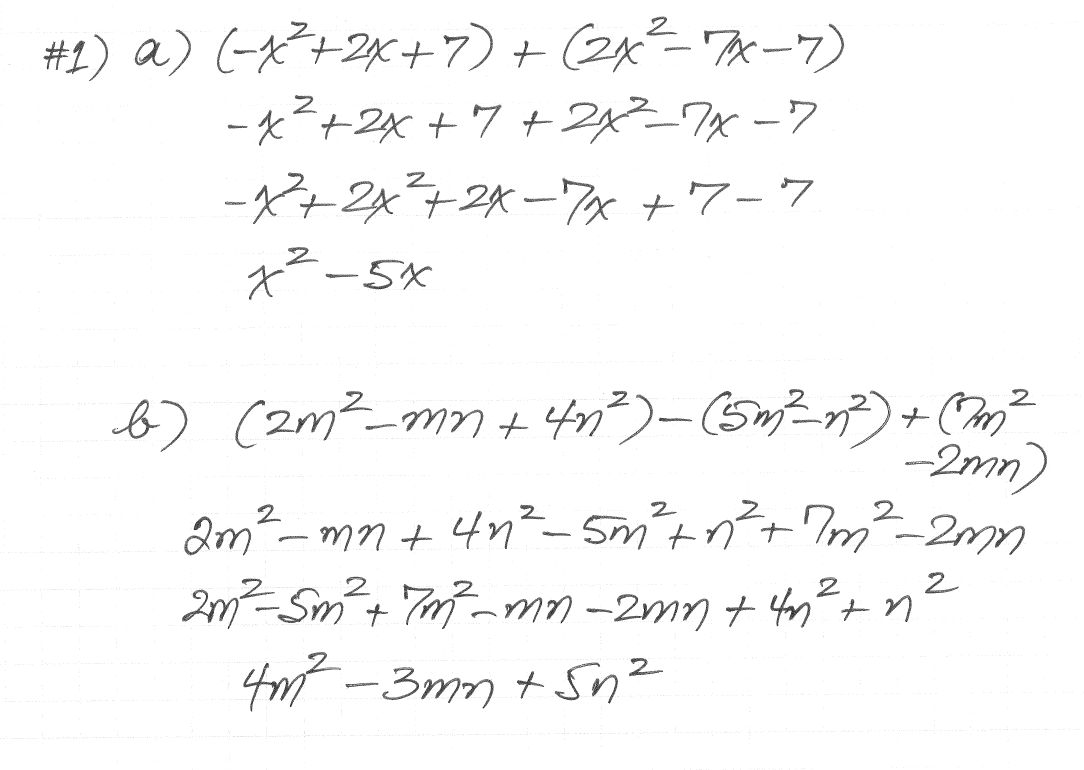 #1) a) (-x²+2x+7) + (2x²-7x-7)
-x²+2x+7+2x²-7x-7
-x²+2x²+2x-7x+7-7
x²-5x
b) (2m²-mn+4n²)-(5m²-n²)+(7m²
-2mn)
2m²-mn+4n²-5m²+n²+7m²-2mn
2m²-5m²+7m²-mn-2mn+4n²+n²
4m²-3mn+5n²